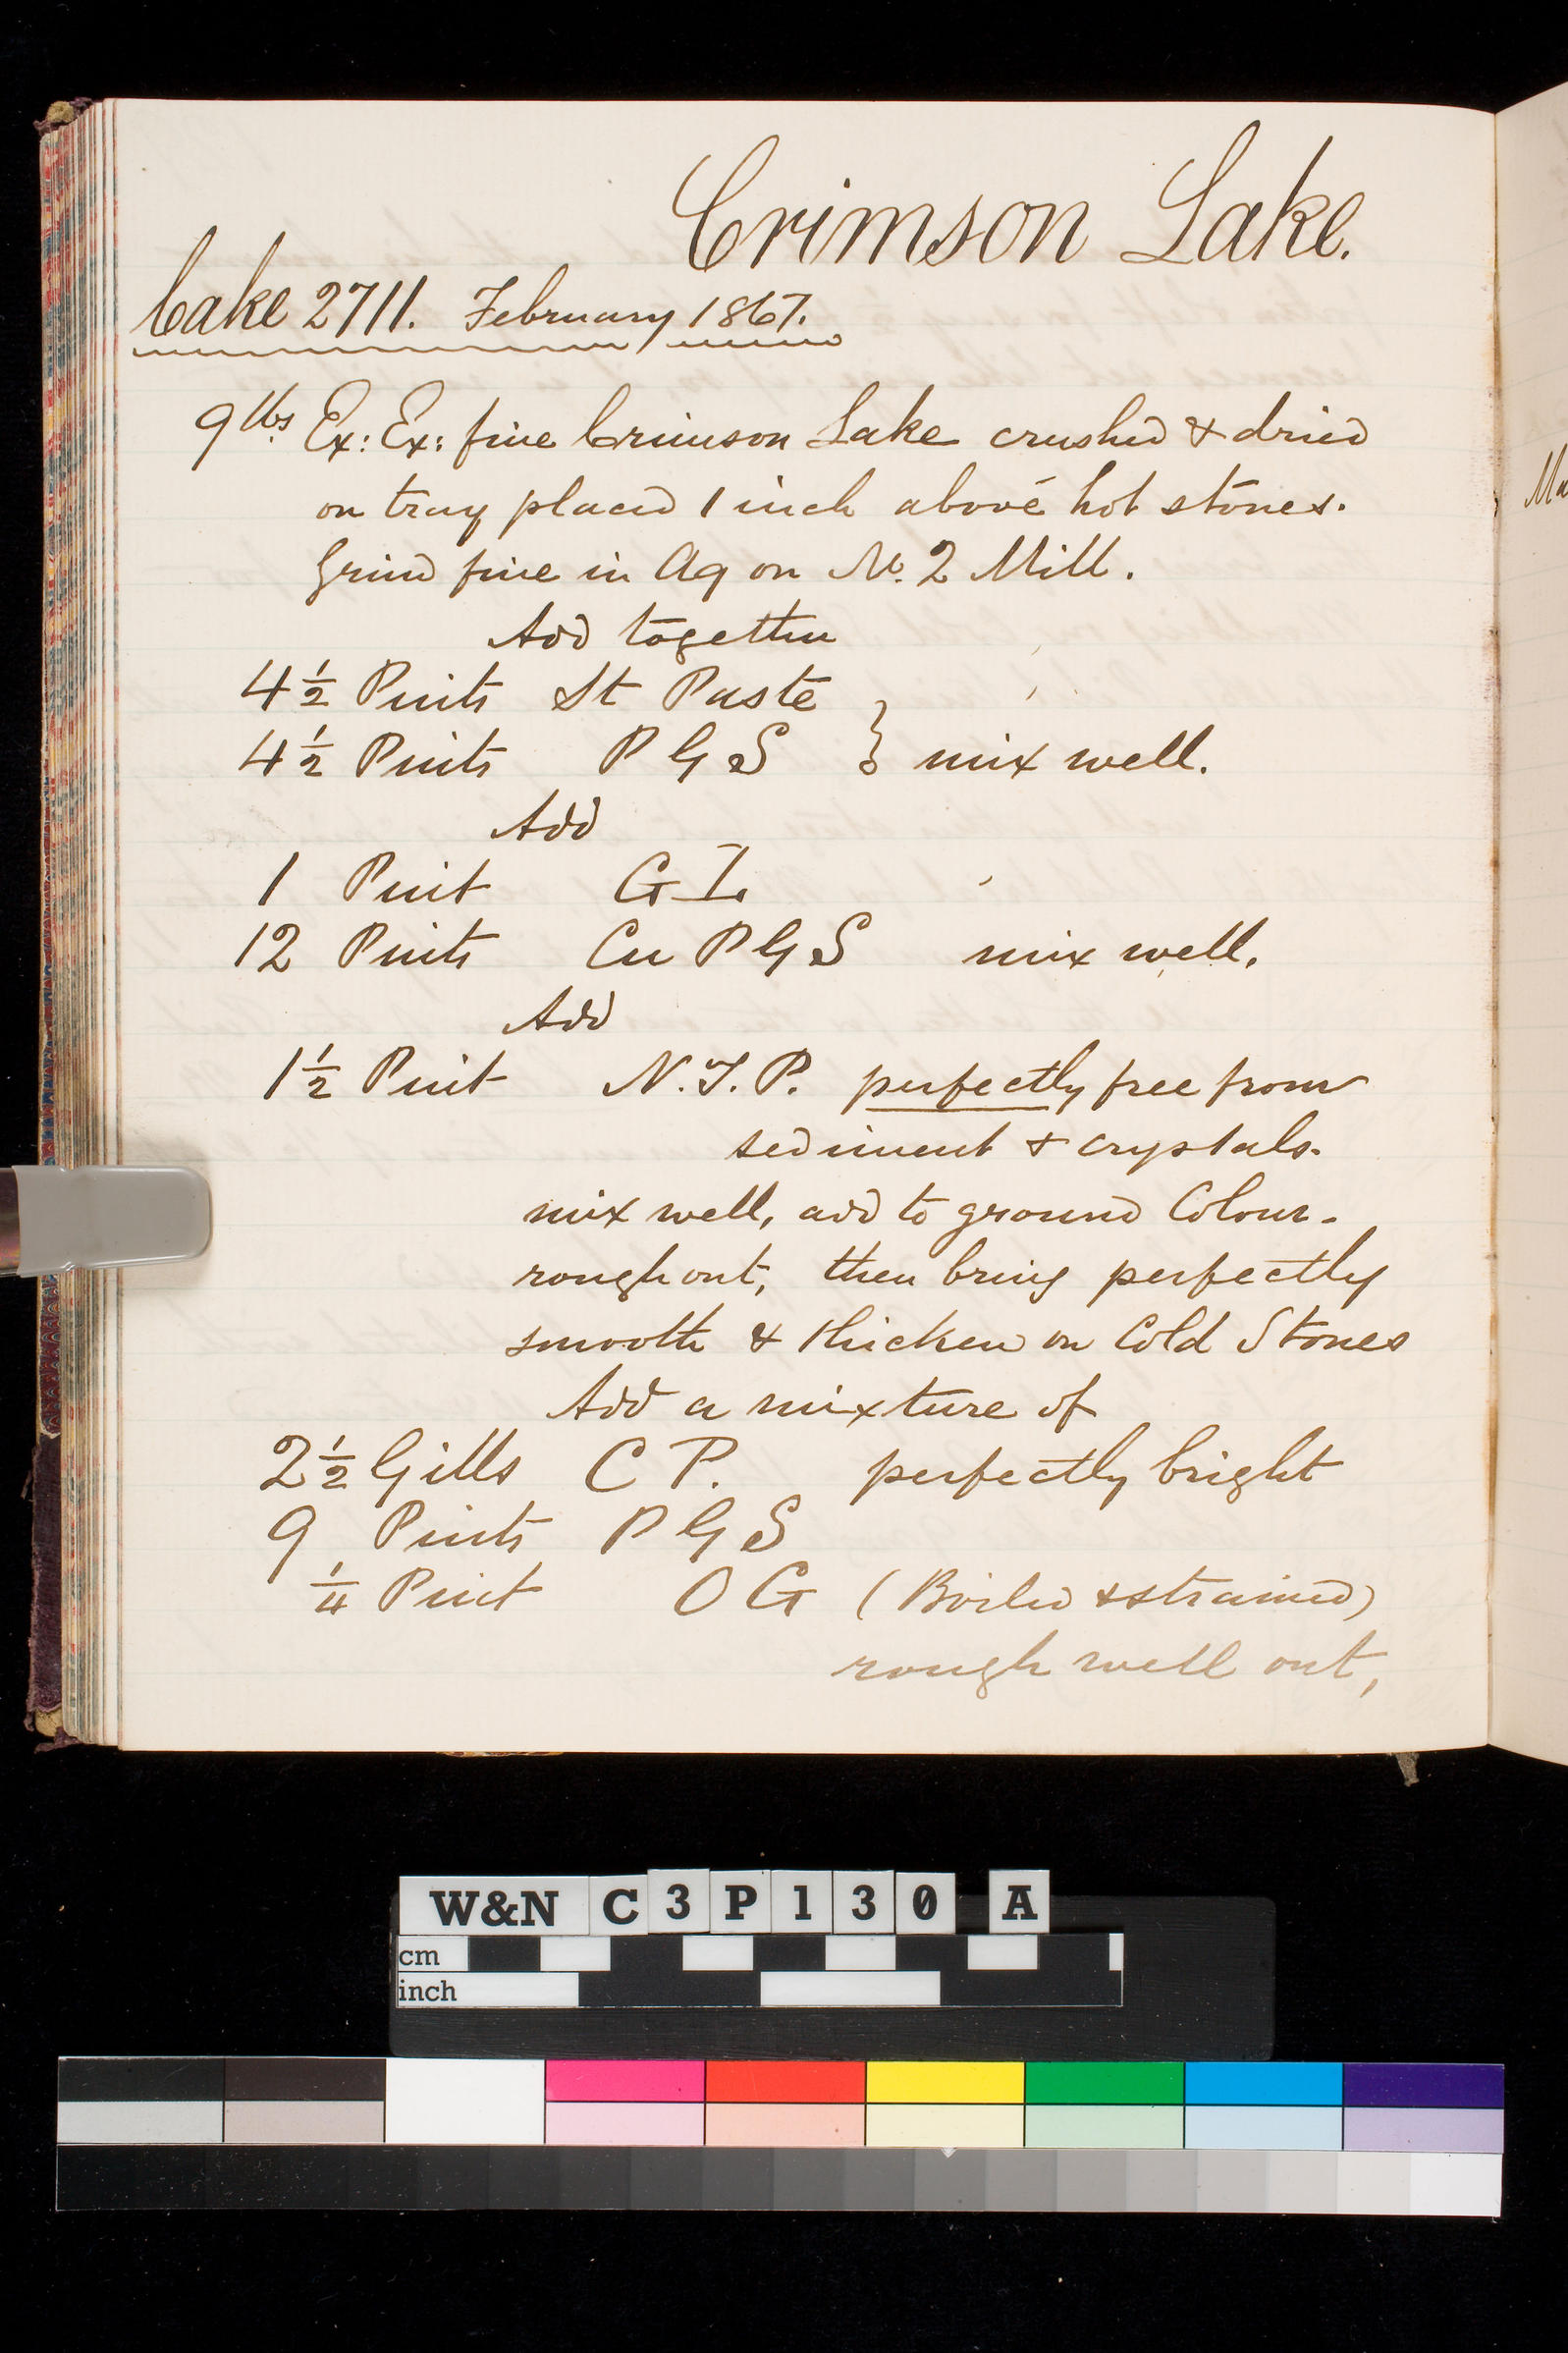 Crimson Lake.
Cake 2711. February 1867.
9 lbs. Ex: Ex: fine Crimson Lake crushed & dried
on tray placed 1 inch above hot stones.
Grind fine in Aq on No. 2 Mill.
Add together
4 1/2 Pints St Paste
4 1/2 Pints P G S } mix well.
Add
1 Pint G I.
12 Pints Cu P G S mix well.
Add
1 1/2 Pint N.T.P. perfectly free from
sediment & crystals.
mix well, add to ground Colour.
rough out, then bring perfectly
smooth & thicken on Cold Stones
Add a mixture of
2 1/2 Gills C P. perfectly bright
9 Pints P G S
1/4 Pint O G (Boiled & strained)
rough well out,
Ma
W&N C3P130 A
cm
inch